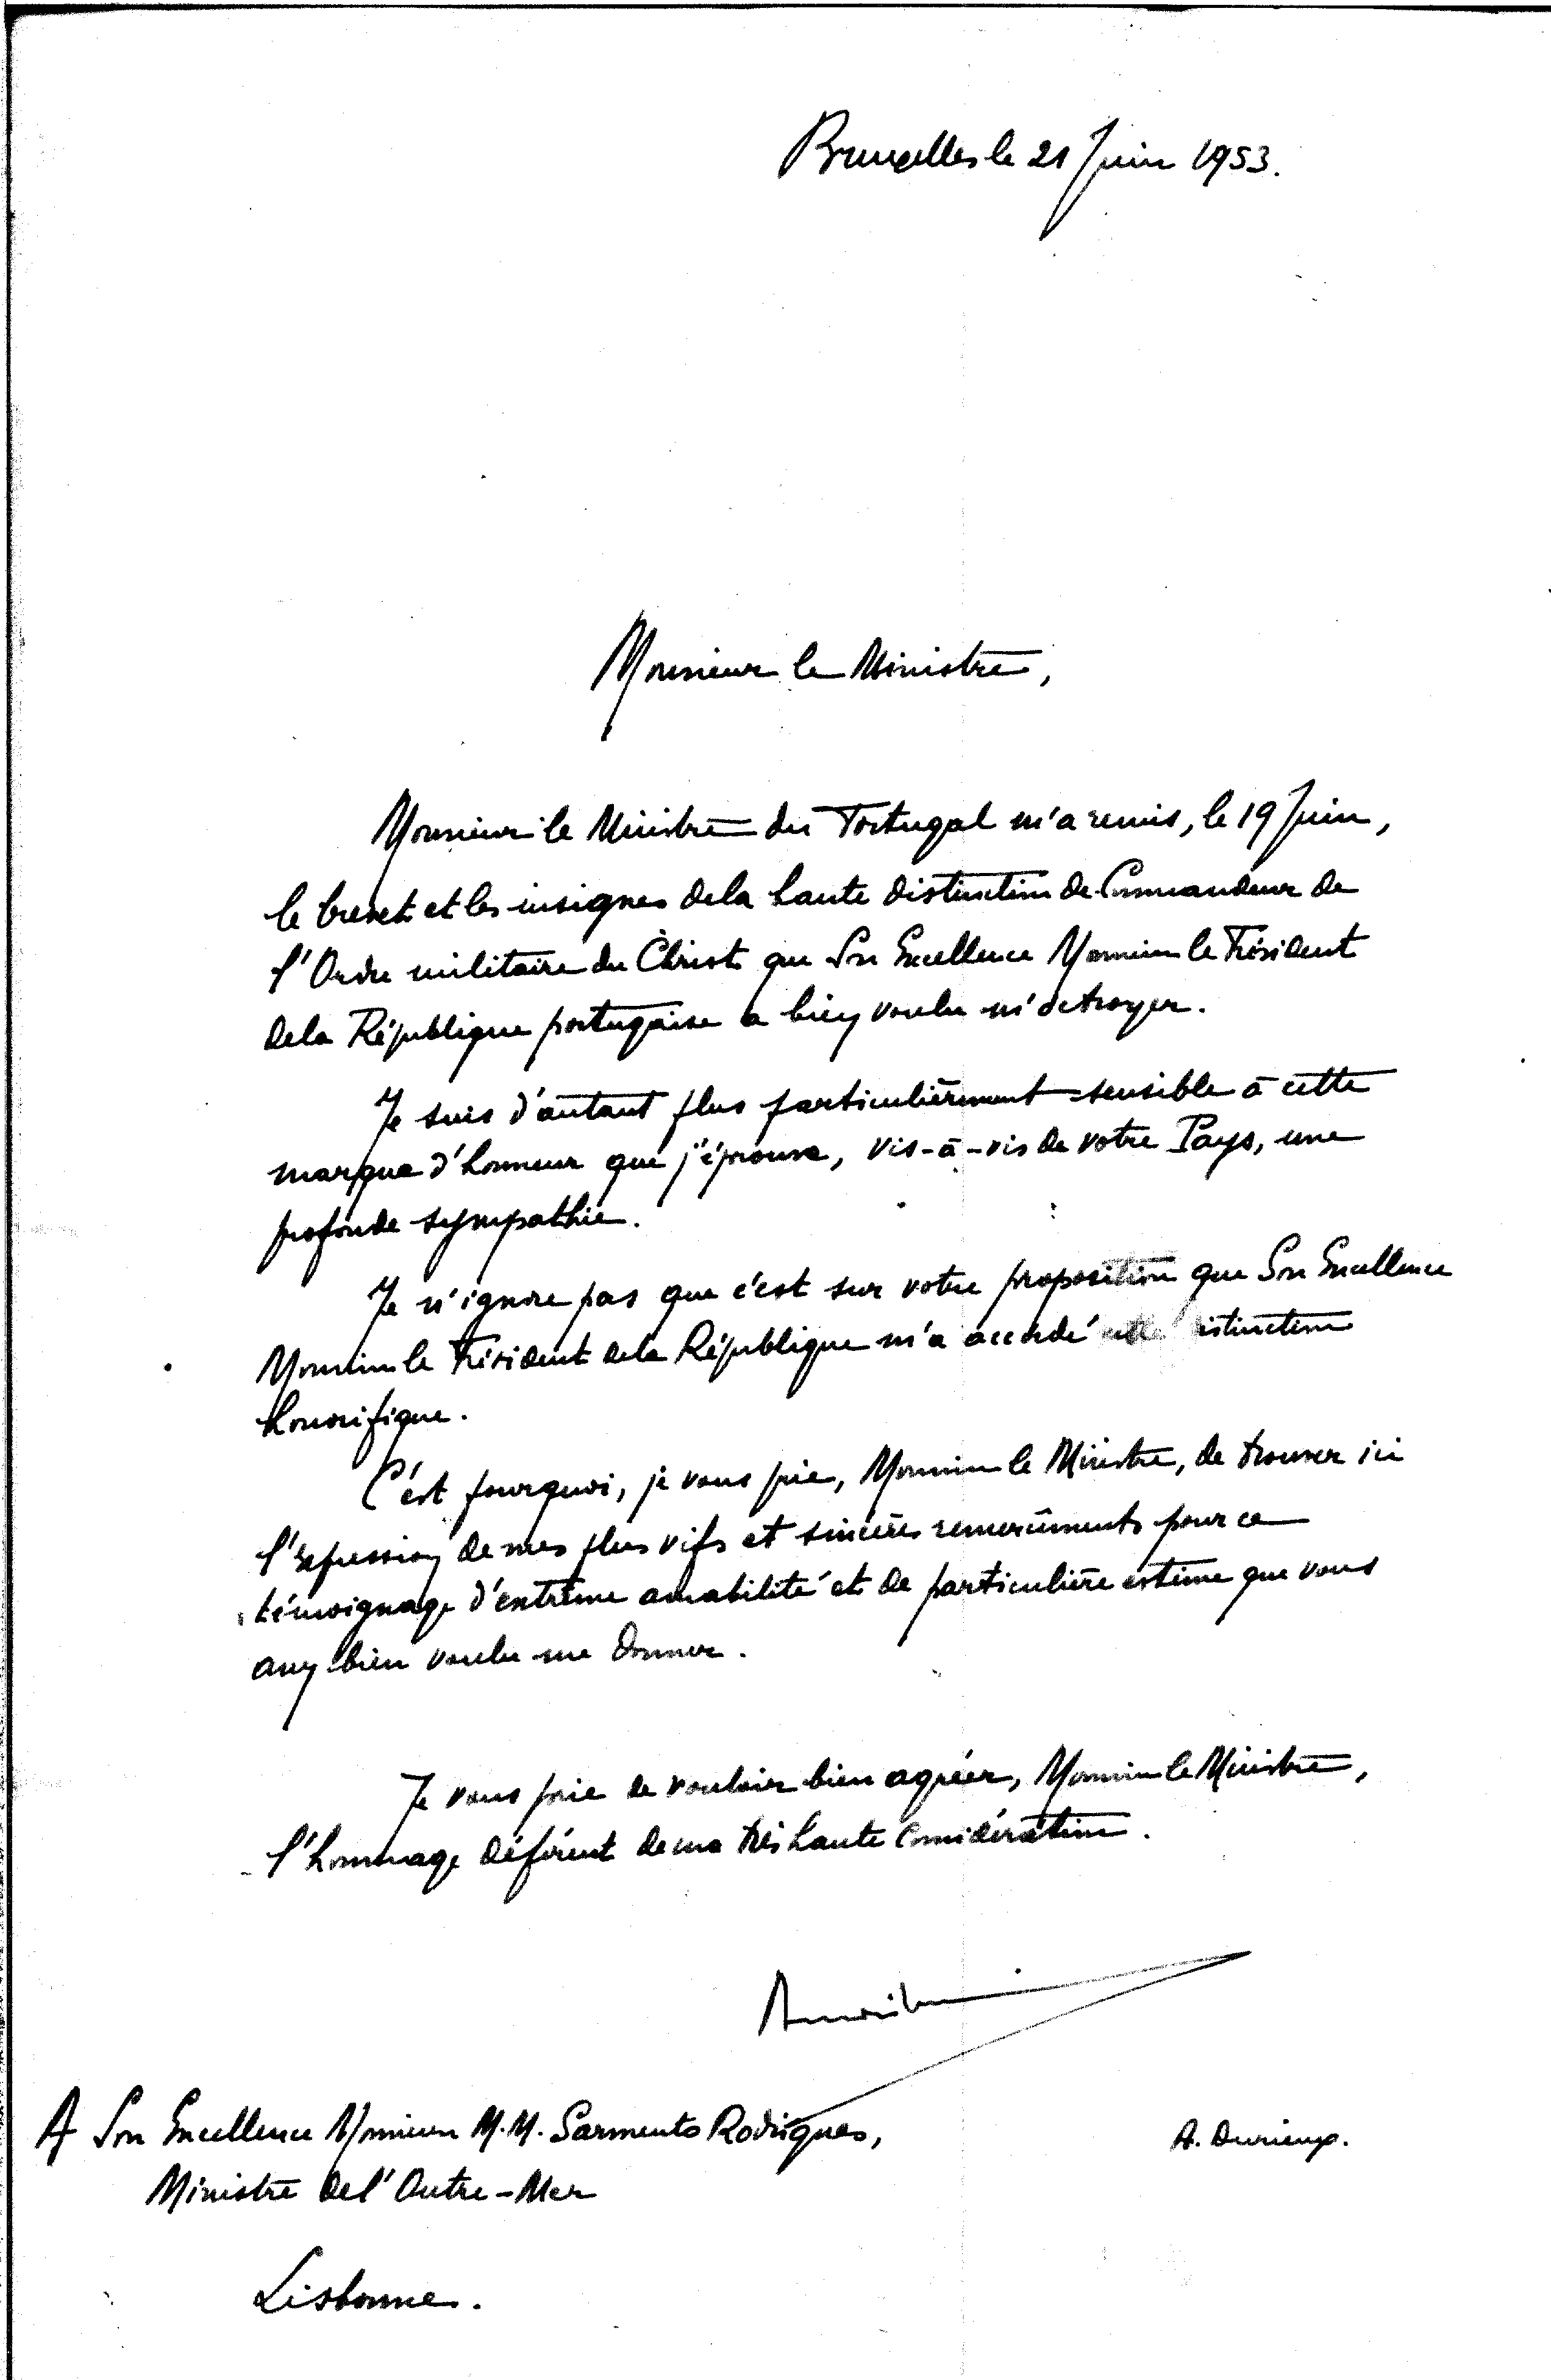 Bruxelles le 21 Juin 1953.
Monsieur le Ministre,
Monsieur le Ministre du Portugal m'a remis, le 19 Juin,
le brevet et les insignes de la haute distinction de Commandeur de
l'Ordre militaire du Christ que Son Excellence Monsieur le Président
de la République portugaise a bien voulu m'octroyer.
Je suis d'autant plus particulièrement sensible à cette
marque d'honneur que j'éprouve, vis-à-vis de votre Pays, une
profonde sympathie.
Je n'ignore pas que c'est sur votre proposition que Son Excellence
Monsieur le Président de la République m'a accordé cette distinction
honorifique.
C'est pourquoi, je vous prie, Monsieur le Ministre, de trouver ici
l'expression de mes plus vifs et sincères remerciements pour ce
témoignage d'extrême amabilité et de particulière estime que vous
avez bien voulu me donner.
Je vous prie de vouloir bien agréer, Monsieur le Ministre,
l'hommage déférent de ma très haute considération.
A Son Excellence Monsieur M.M. Sarmento Rodrigues,
A. Durieux.
Ministre de l'Outre-Mer
Lisbonne.